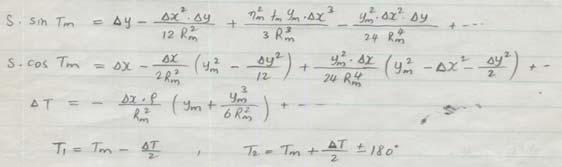 S. sin Tm = Δy − Δx²·Δy / 12 Rm² + ηm² tm ym·Δx³ / 3 Rm³ − ym²·Δx²·Δy / 24 Rm⁴ + ---
S. cos Tm = Δx − Δx / 2Rm² (ym² − Δy² / 12) + ym²·Δx / 24 Rm⁴ (ym² − Δx² − Δy² / 2) + -
ΔT = − Δx·ρ / Rm² (ym + ym³ / 6 Rm²) + ---
T1 = Tm − ΔT / 2 , T2 = Tm + ΔT / 2 ± 180°